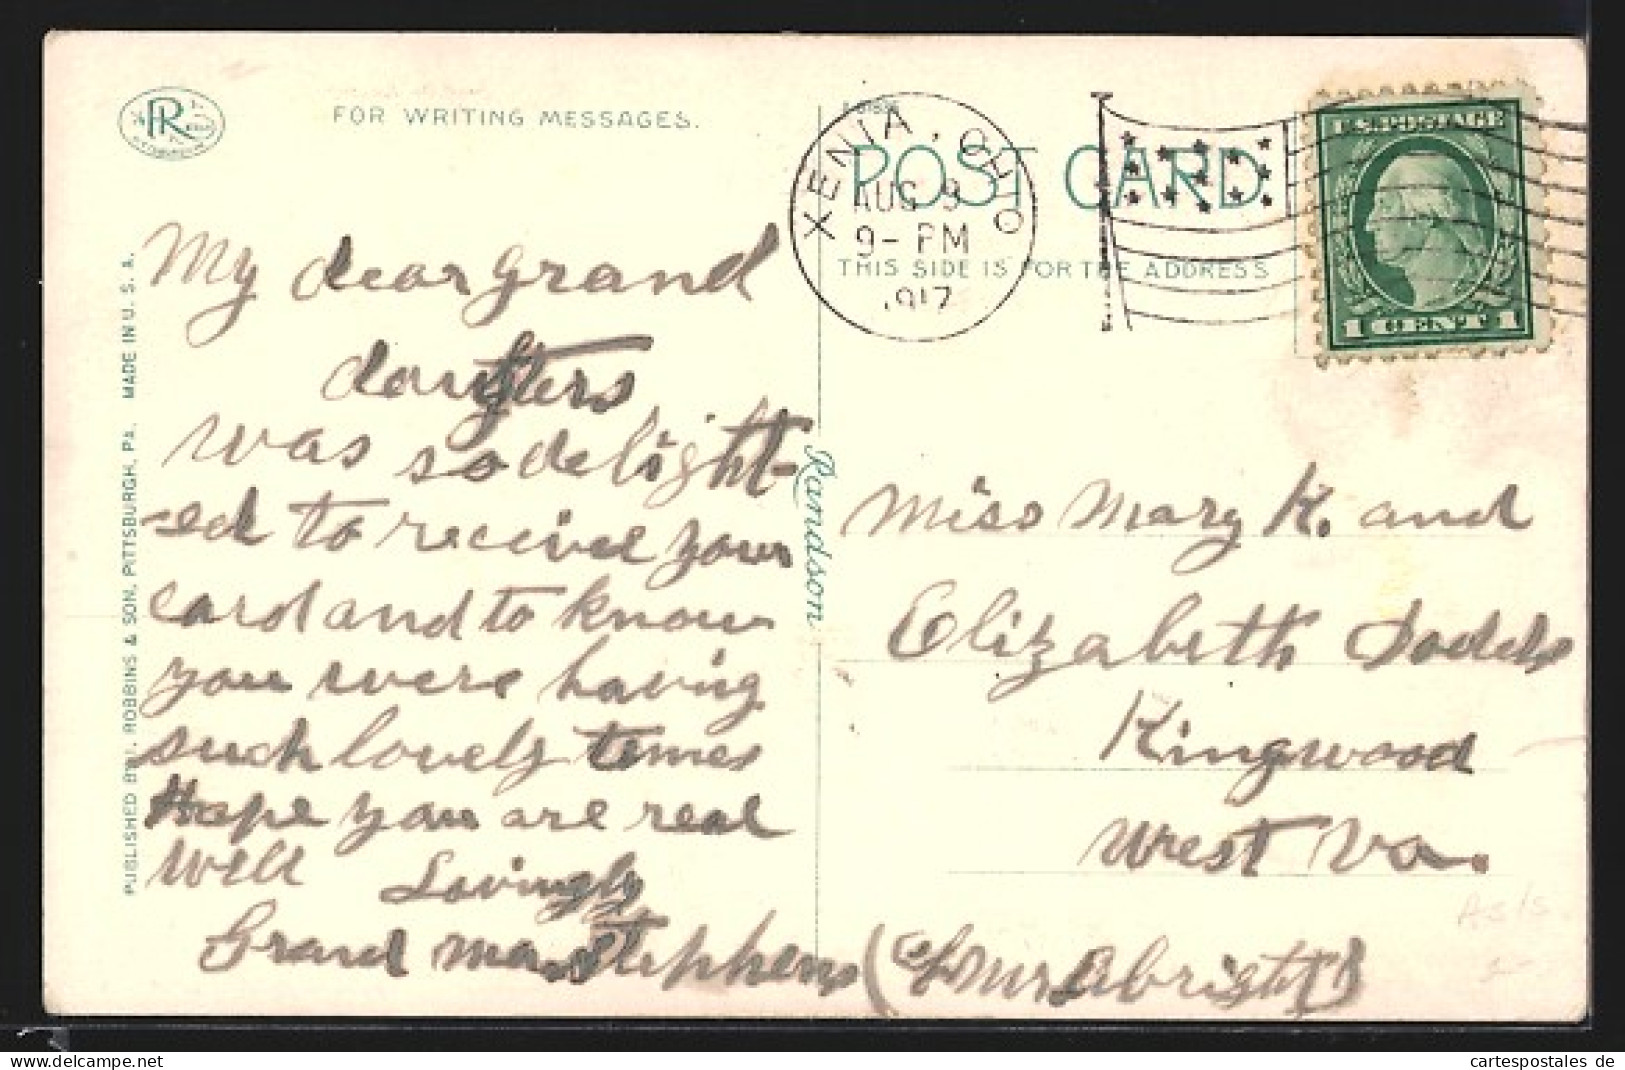 FOR WRITING MESSAGES.
POST CARD.
THIS SIDE IS FOR THE ADDRESS
XENIA, OHIO
AUG 9
9- PM
1917
U.S. POSTAGE
1 CENT 1
PR
PUBLISHED BY I. ROBBINS & SON, PITTSBURGH, PA. MADE IN U. S. A.
Randson
My dear grand
daughters
was so delight-
-ed to receive your
card and to know
you were having
such lovely times
Hope you are real
well Lovingly
Grand ma Stephens (c/o Mrs Albright)
Miss Mary K. and
Elizabeth Dodds
Kingwood
West Va.
As/s
www.delcampe.net
cartespostales de